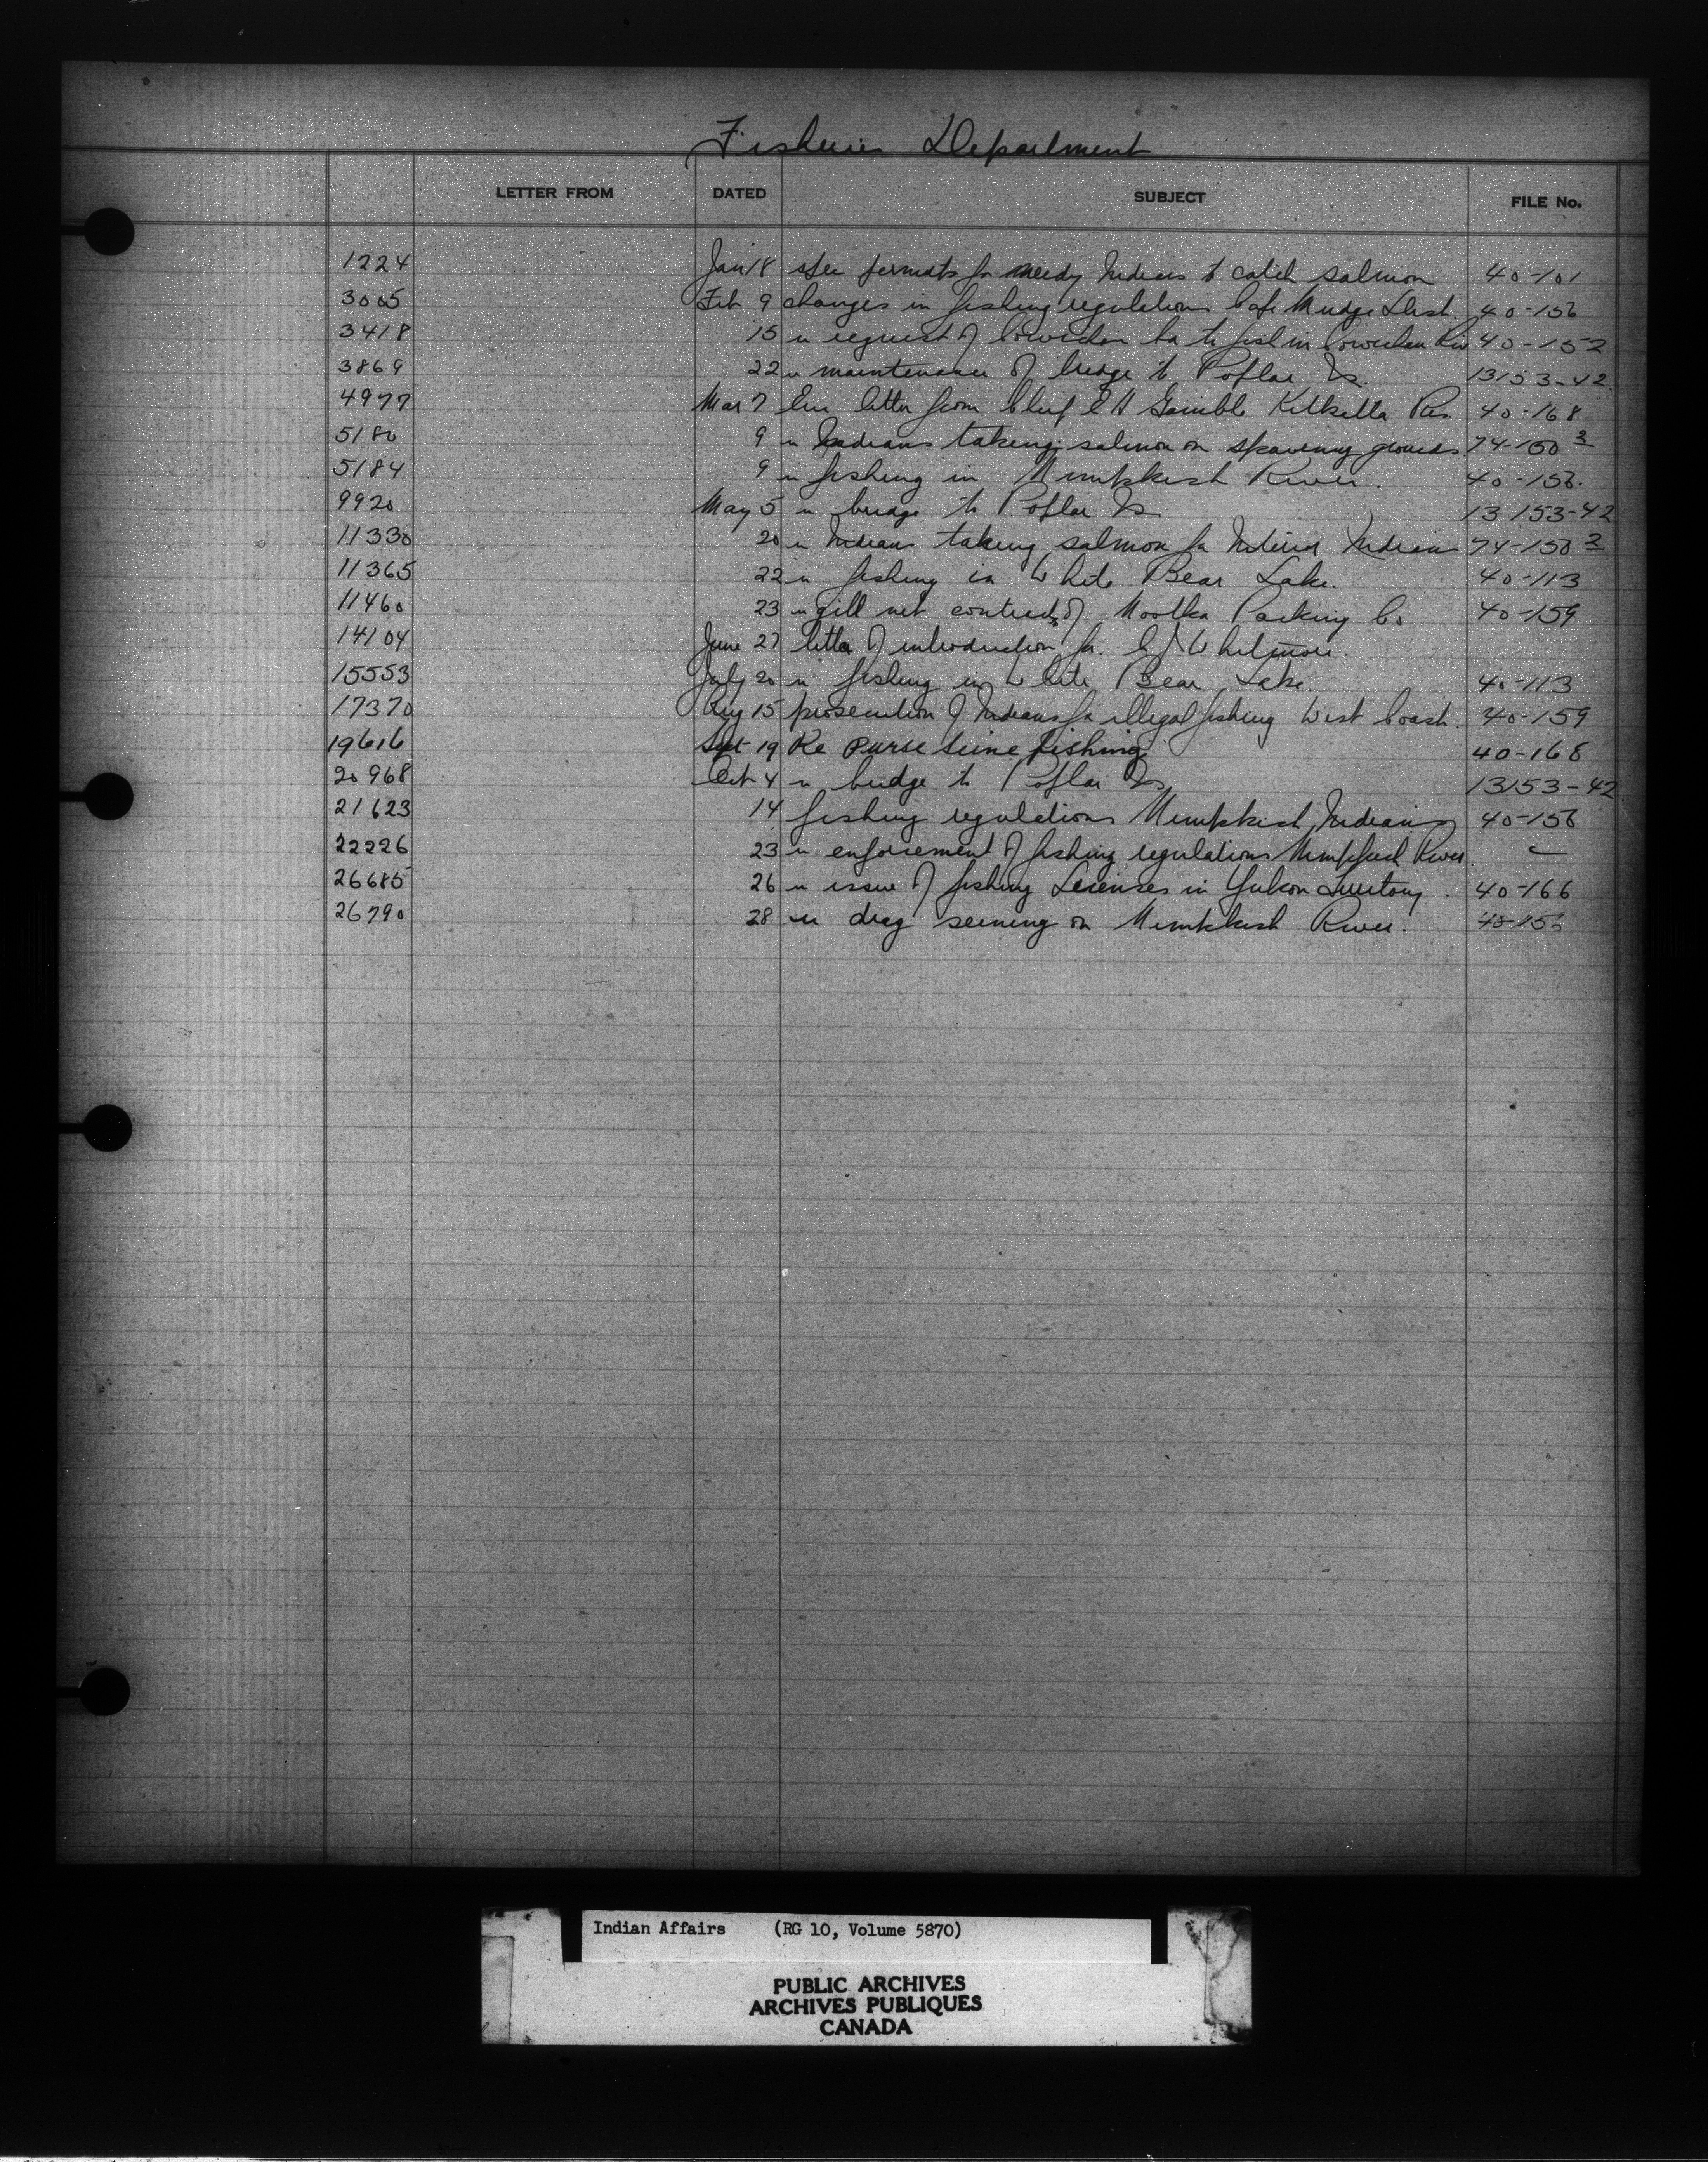 Fisheries Department
LETTER FROM DATED SUBJECT FILE No.
1224 Jan 18 permits for needy Indians to catch salmon 40-101
3005 Feb 9 changes in fishing regulations Cape Mudge Dist. 40-156
3418 15 re request of Cowichan to fish in Cowichan Riv 40-152
3869 22 re maintenance of bridge to Poplar Is. 13153-42
4977 Mar 7 Enc letter from Chief Gamble Kitkatla Res. 40-168
5180 9 re Indians taking salmon on spawning grounds 74-150 2
5184 9 re fishing in Nimpkish River. 40-156.
9920 May 5 re bridge to Poplar Is 13153-42
11330 20 re Indians taking salmon for Interior Indians 74-150 2
11365 22 re fishing in White Bear Lake. 40-113
11460 23 re gill net contracts of Nootka Packing Co 40-159
14104 June 27 letter of introduction for C J Whitmore.
15553 July 20 re fishing in White Bear Lake. 40-113
17370 Aug 15 prosecution of Indians for illegal fishing West Coast. 40-159
19616 Sept 19 Re purse seine fishing 40-168
20968 Oct 4 re bridge to Poplar Is 13153-42
21623 14 fishing regulations Nimpkish Indians 40-156
22226 23 re enforcement of fishing regulations Nimpkish River.
26685 26 re issue of fishing Licenses in Yukon Territory. 40-166
26790 28 re drag seining on Nimpkish River. 40-156
Indian Affairs (RG 10, Volume 5870)
PUBLIC ARCHIVES
ARCHIVES PUBLIQUES
CANADA